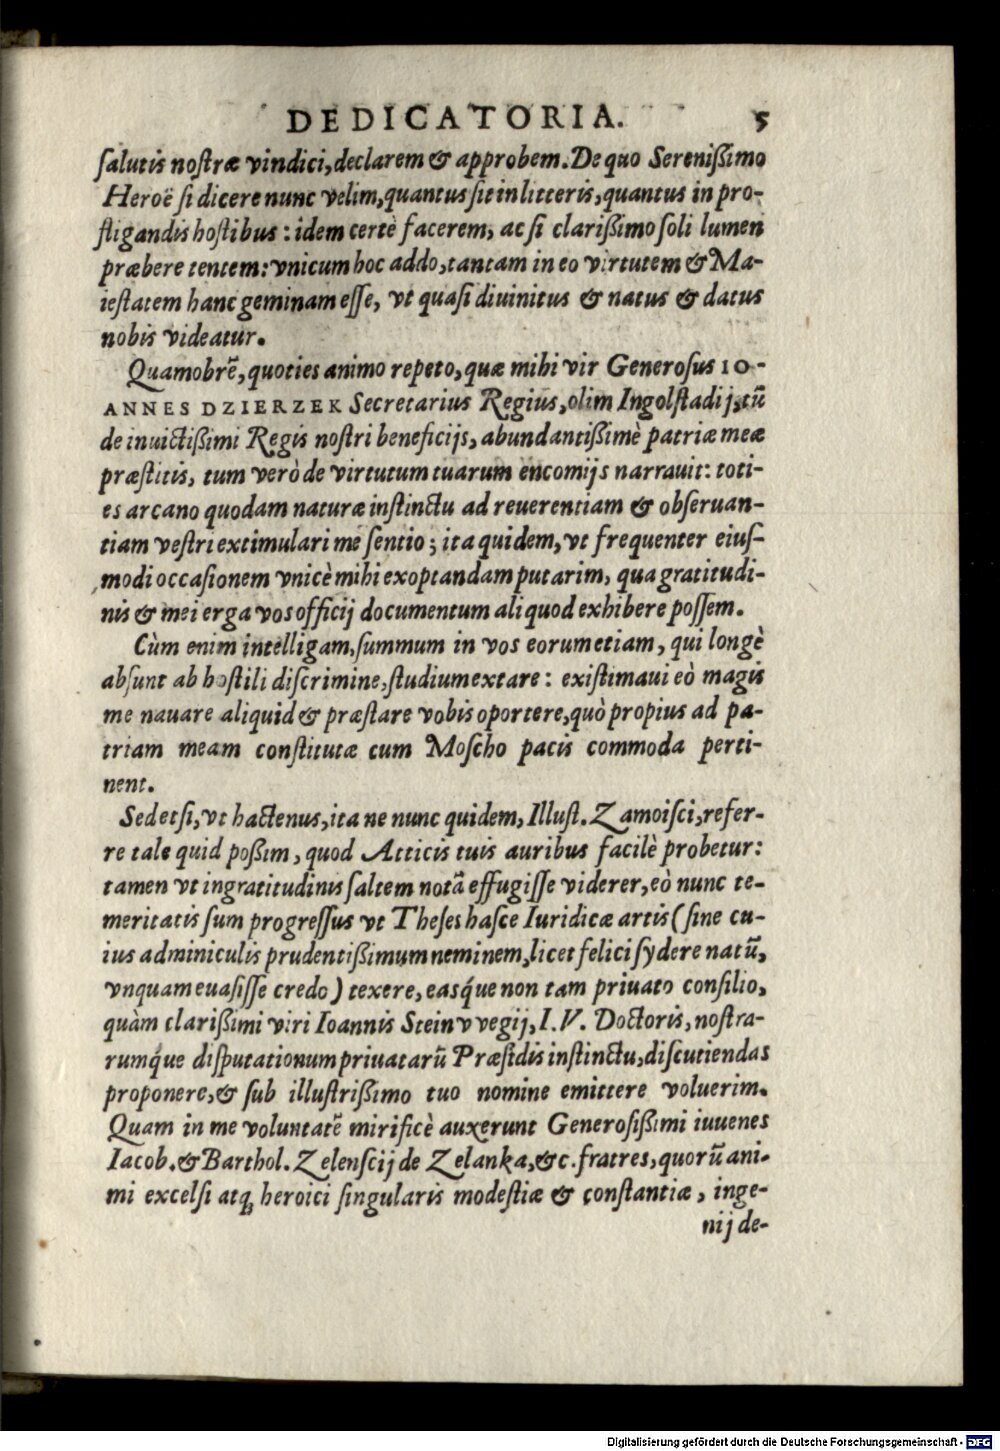 DEDICATORIA. 5
ſalutis noſtræ vindici, declarem & approbem. De quo Sereniſſimo
Heroë ſi dicere nunc velim, quantus ſit in litteris, quantus in pro-
fligandis hoſtibus : idem certè facerem, ac ſi clariſſimo ſoli lumen
præbere tentem: vnicum hoc addo, tantam in eo virtutem & Ma-
ieſtatem hanc geminam eſſe, vt quaſi diuinitus & natus & datus
nobis videatur.
Quamobrẽ, quoties animo repeto, quæ mihi vir Generoſus IO-
ANNES DZIERZEK Secretarius Regius, olim Ingolſtadij, tũ
de inuictiſſimi Regis noſtri beneficijs, abundantiſſimè patriæ meæ
præſtitis, tum verò de virtutum tuarum encomijs narrauit: toti-
es arcano quodam naturæ inſtinctu ad reuerentiam & obſeruan-
tiam veſtri extimulari me ſentio ; ita quidem, vt frequenter eiuſ-
modi occaſionem vnicè mihi exoptandam putarim, qua gratitudi-
nis & mei erga vos officij documentum aliquod exhibere poſſem.
Cùm enim intelligam, ſummum in vos eorum etiam, qui longè
abſunt ab hoſtili diſcrimine, ſtudium extare : exiſtimaui eò magis
me nauare aliquid & præſtare vobis oportere, quò propius ad pa-
triam meam conſtitutæ cum Moſcho pacis commoda perti-
nent.
Sed etſi, vt hactenus, ita ne nunc quidem, Illuſt. Zamoiſci, refer-
re tale quid poſſim, quod Atticis tuis auribus facilè probetur:
tamen vt ingratitudinis ſaltem notã effugiſſe viderer, eò nunc te-
meritatis ſum progreſſus vt Theſes haſce Iuridicæ artis (ſine cu-
ius adminiculis prudentiſſimum neminem, licet felici ſydere natũ,
vnquam euaſiſſe credo) texere, easq́ue non tam priuato conſilio,
quàm clariſſimi viri Ioannis Steinvvegij, I.V. Doctoris, noſtra-
rumq́ue diſputationum priuatarũ Præſidis inſtinctu, diſcutiendas
proponere, & ſub illuſtriſſimo tuo nomine emittere voluerim.
Quam in me voluntatẽ mirificè auxerunt Generoſiſſimi iuuenes
Iacob. & Barthol. Zelenſcij de Zelanka, &c. fratres, quorũ ani-
mi excelſi atq; heroici ſingularis modeſtiæ & conſtantiæ, inge-
nij de-
Digitalisierung gefördert durch die Deutsche Forschungsgemeinschaft - DFG